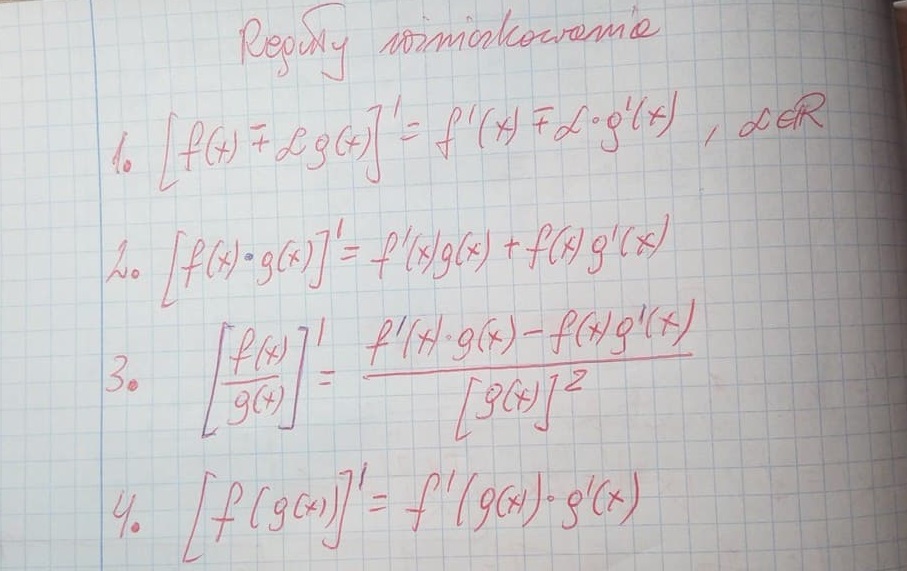 Reguły różniczkowania
1. [f(x) ∓ αg(x)]' = f'(x) ∓ α·g'(x) , α∈R
2. [f(x)·g(x)]' = f'(x)g(x) + f(x)g'(x)
3. [f(x)/g(x)]' = f'(x)·g(x) - f(x)g'(x) / [g(x)]²
4. [f(g(x))]' = f'(g(x))·g'(x)